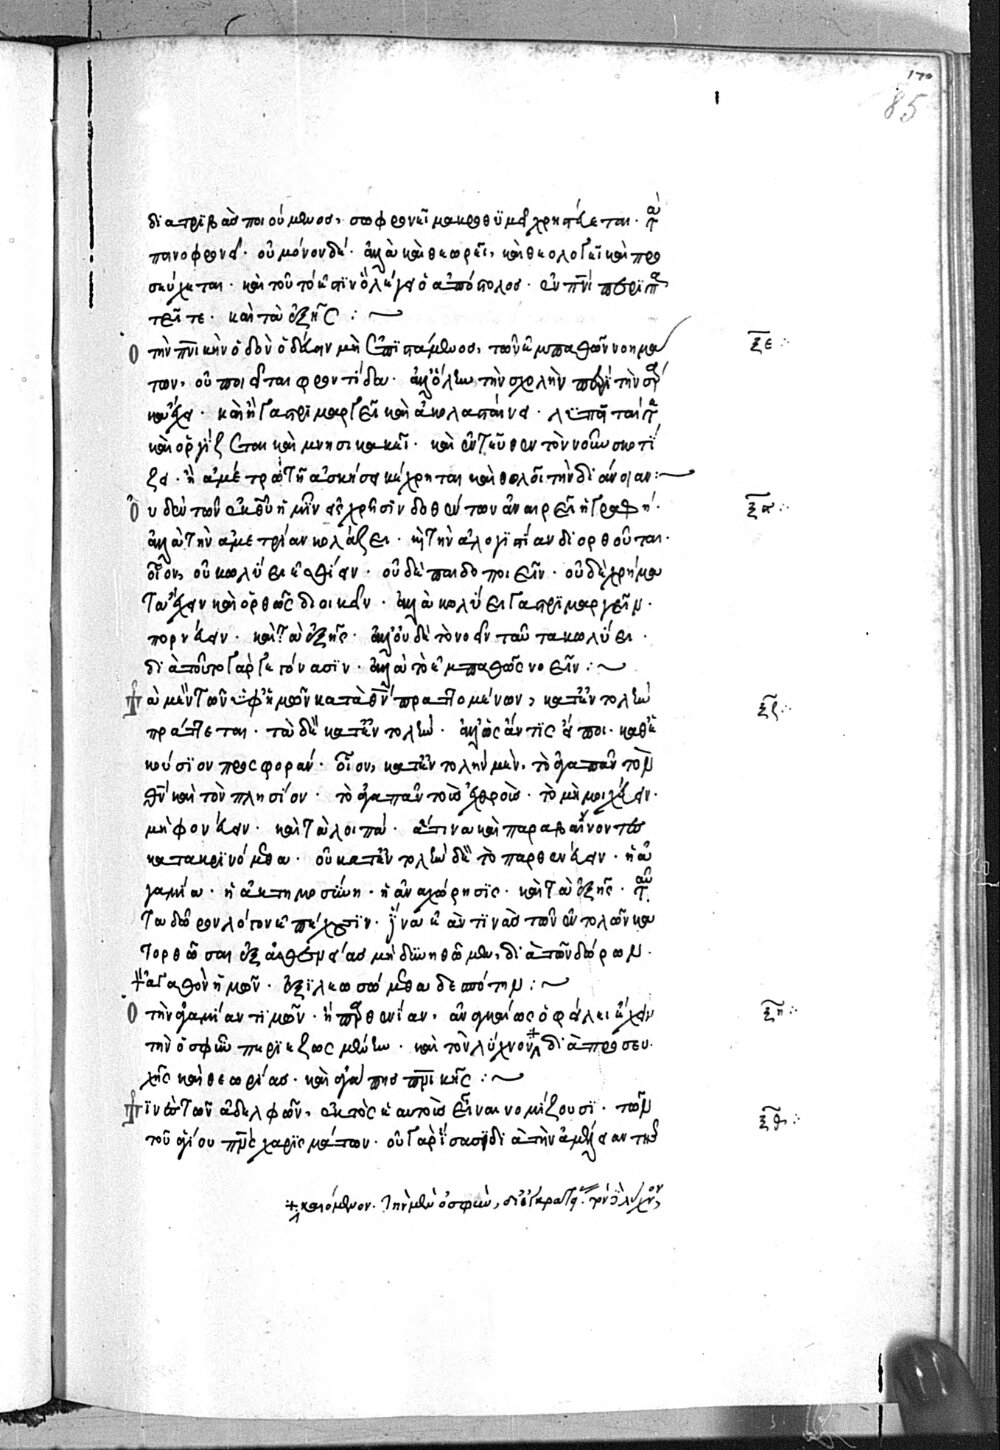 διατριβὰς ποιούμενος, σωφρονεῖ μακροθυμεῖ χρηστεύεται· τα
πεινοφρονεῖ· οὐ μόνον δέ· ἀλλὰ καὶ θεωρεῖ, καὶ θεολογεῖ καὶ προ
σεύχεται· καὶ τοῦτό ἐστιν ὃ λέγει ὁ ἀπόστολος· ἐν πνι περιπα
τεῖτε· καὶ τὰ ἑξῆς :~
Ὁ τὴν πνικὴν ὁδὸν ὁδεύειν μὴ ἐπιστάμενος, τῶν ἐμπαθῶν νοημά
των, οὐ ποιεῖται φροντίδα· ἀλλ' ὅλην τὴν σχολὴν περὶ τὴν σάρ
κα ἔχει· καὶ ἢ γαστριμαργεῖ καὶ ἀκολασταίνει· λυπεῖται
καὶ ὀργίζεται καὶ μνησικακεῖ· καὶ ἐντεῦθεν τὸν νοῦν σκοτί
ζει· ἢ ἀμέτρως τῇ ἀσκήσει κέχρηται καὶ θολοῖ τὴν διάνοιαν :~
ξε
Οὐδὲν τῶν ἐκ θῦ ἡμῖν εἰς χρῆσιν δοθέντων ἀναιρεῖ ἡ γραφή·
ἀλλὰ τὴν ἀμετρίαν κολάζει· κ τὴν ἀλογιστίαν διορθοῦται·
οἷον, οὐ κωλύει ἐσθίειν· οὐδὲ παιδοποιεῖν· οὐδὲ χρήμα
τα ἔχειν καὶ ὀρθῶς διοικεῖν· ἀλλὰ κωλύει γαστριμαργεῖν·
πορνεύειν· καὶ τὰ ἑξῆς· ἀλλ' οὐδὲ τὸ νοεῖν ταῦτα κωλύει·
διὰ τοῦτο γὰρ γεγόνασιν· ἀλλὰ τὸ ἐμπαθῶς νοεῖν :~
Τὰ μὲν τῶν ὑφ' ἡμῶν κατὰ θν πραττομένων, κατ' ἐντολὴν
πράττεται· τὰ δὲ κατ' ἐντολήν· ἀλλ' ὡς ἄν τις εἴποι· καθ' ἑ
κούσιον προσφοράν· οἷον, κατ' ἐντολὴν μὲν, τὸ ἀγαπᾶν τὸν
θν καὶ τὸν πλησίον· τὸ ἀγαπᾶν τοὺς ἐχθρούς· τὸ μὴ μοιχεύειν·
μὴ φονεύειν· καὶ τὰ λοιπά· ἅτινα καὶ παραβαίνοντες
κατακρινόμεθα· οὐ κατ' ἐντολὴν δὲ τὸ παρθενεύειν· ἡ ἀ
γαμία· ἡ ἀκτημοσύνη· ἡ ἀναχώρησις· καὶ τὰ ἑξῆς· ταῦ
τα δώρων λόγον ἐπέχουσιν· ἵνα ἐάν τινας τῶν ἐντολῶν κα
τορθῶσαι ἐξ ἀσθενείας μὴ δυνηθῶμεν, διὰ τῶν δώρων
τὸν ἀγαθὸν ἡμῶν· ἐξιλεωσώμεθα δεσπότην :~
ξζ
Ὁ τὴν ἀγαμίαν τιμῶν· ἢ παρθενίαν, ἀναγκαίως ὀφείλει ἔχειν
τὴν ὀσφὺν περιεζωσμένην· καὶ τὸν λύχνον διὰ προσευ
χῆς καὶ θεωρίας· καὶ ἀγάπης πνικῆς :~
ξη
Τινὲς τῶν ἀδελφῶν, ἐκτὸς ἑαυτοὺς εἶναι νομίζουσι· τῶν
τοῦ ἁγίου πνς χαρισμάτων· οὐ γὰρ ἴσασι, διὰ τὴν ἀμέλειαν τῆς
ξθ
καιόμενον. τὴν μὲν ὀσφὺν, δι' ἐγκρατείας· τὸν δὲ λύχνον,
170
85